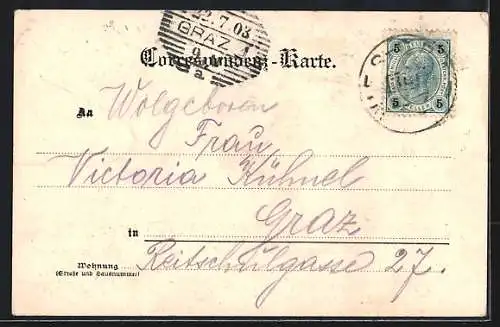 22.7.03
GRAZ 1
9
a
Correspondenz-Karte.
5 5
5 5
An Wolgeboren
Frau
Victoria Kühnel
in Graz
Reitschulgasse 27.
Wohnung
(Straße und Hausnummer)